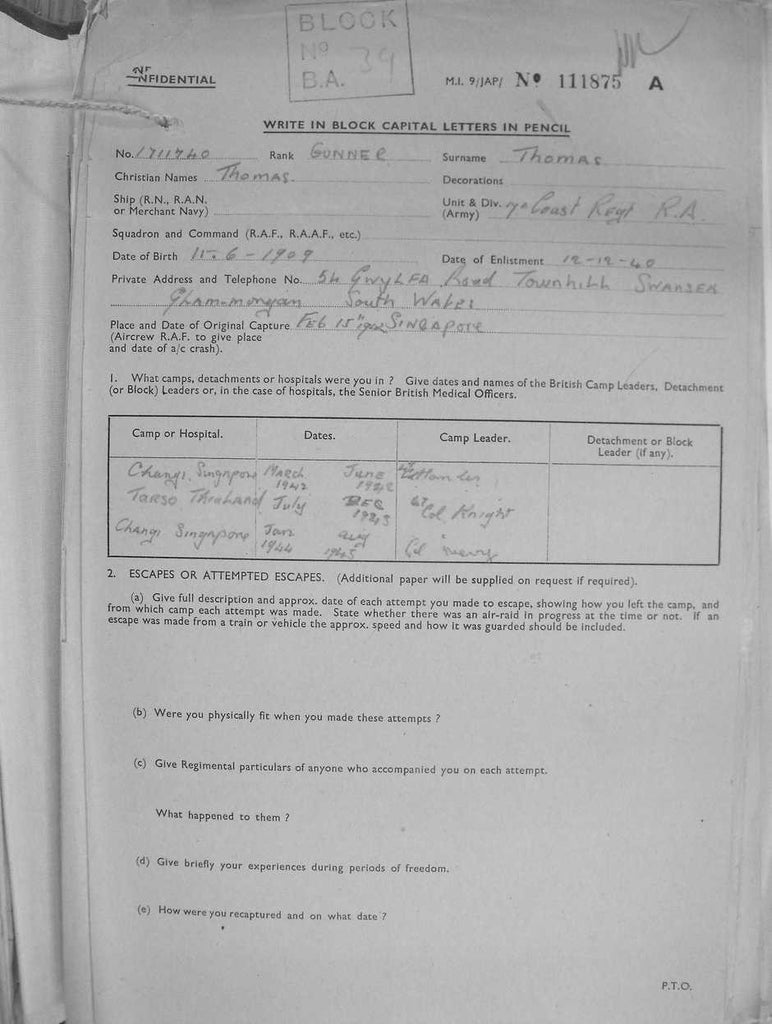 BLOCK
No 39
B.A.
NFIDENTIAL
M.I. 9/JAP/ No 111875 A
WRITE IN BLOCK CAPITAL LETTERS IN PENCIL
No. 1711740 Rank GUNNER Surname Thomas
Christian Names Thomas Decorations
Ship (R.N., R.A.N. or Merchant Navy)
Unit & Div. (Army) Coast Regt R.A.
Squadron and Command (R.A.F., R.A.A.F., etc.)
Date of Birth 11.6-1909 Date of Enlistment 12-12-40
Private Address and Telephone No. 54 GWYLFA Road Townhill SWANSEA
South Wales
Place and Date of Original Capture FEB 15th 1942 SINGAPORE
(Aircrew R.A.F. to give place
and date of a/c crash).
1. What camps, detachments or hospitals were you in ? Give dates and names of the British Camp Leaders, Detachment
(or Block) Leaders or, in the case of hospitals, the Senior British Medical Officers.
Camp or Hospital. Dates. Camp Leader. Detachment or Block Leader (if any).
Changi, Singapore March 1942 June 1942
TARSO THAILAND July DEC 1943 Lt Col Knight
Changi Singapore Jan 1944 Aug 1945 Col
2. ESCAPES OR ATTEMPTED ESCAPES. (Additional paper will be supplied on request if required).
(a) Give full description and approx. date of each attempt you made to escape, showing how you left the camp, and
from which camp each attempt was made. State whether there was an air-raid in progress at the time or not. If an
escape was made from a train or vehicle the approx. speed and how it was guarded should be included.
(b) Were you physically fit when you made these attempts ?
(c) Give Regimental particulars of anyone who accompanied you on each attempt.
What happened to them ?
(d) Give briefly your experiences during periods of freedom.
(e) How were you recaptured and on what date ?
P.T.O.